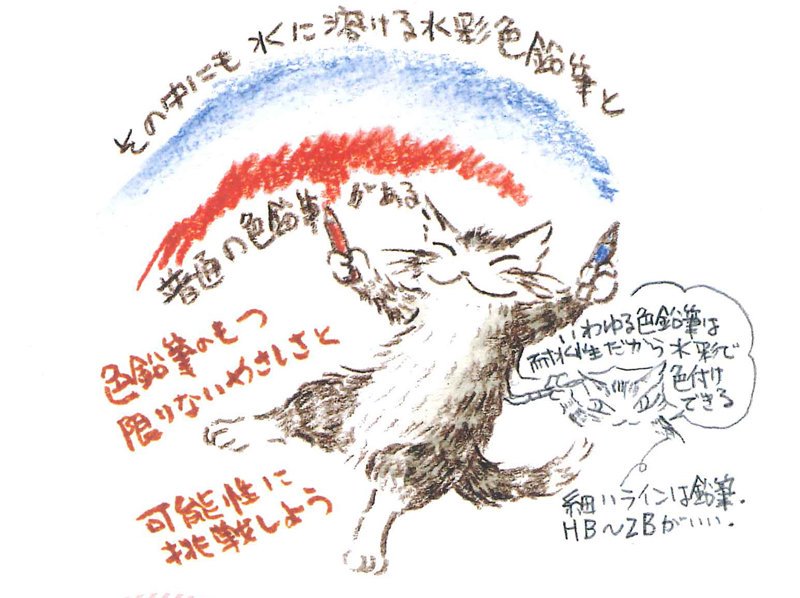 その中にも水に溶ける水彩色鉛筆と
普通の色鉛筆がある
色鉛筆のもつ
限りないやさしさと
可能性に
挑戦しよう
いわゆる色鉛筆は
耐水性だから水彩で
色付け
できる
細いラインは鉛筆.
HB〜2Bがいい.